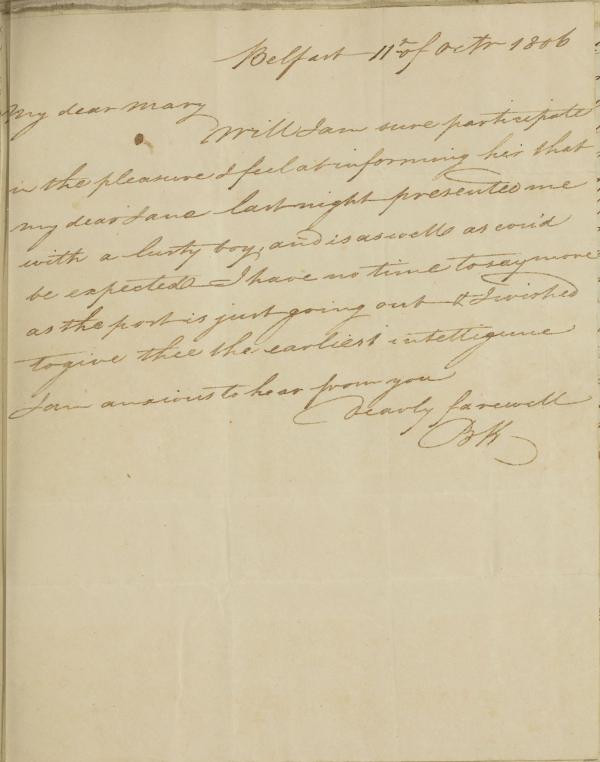 Belfast 11th of Octr 1806
My dear Mary
Will I am sure participate
in the pleasure I feel at informing her that
my dear Jane last night presented me
with a lusty boy, and is as well as could
be expected – I have no time to say more
as the post is just going out & I wished
to give thee the earliest intelligence
I am anxious to hear from you
dearly farewell
BK